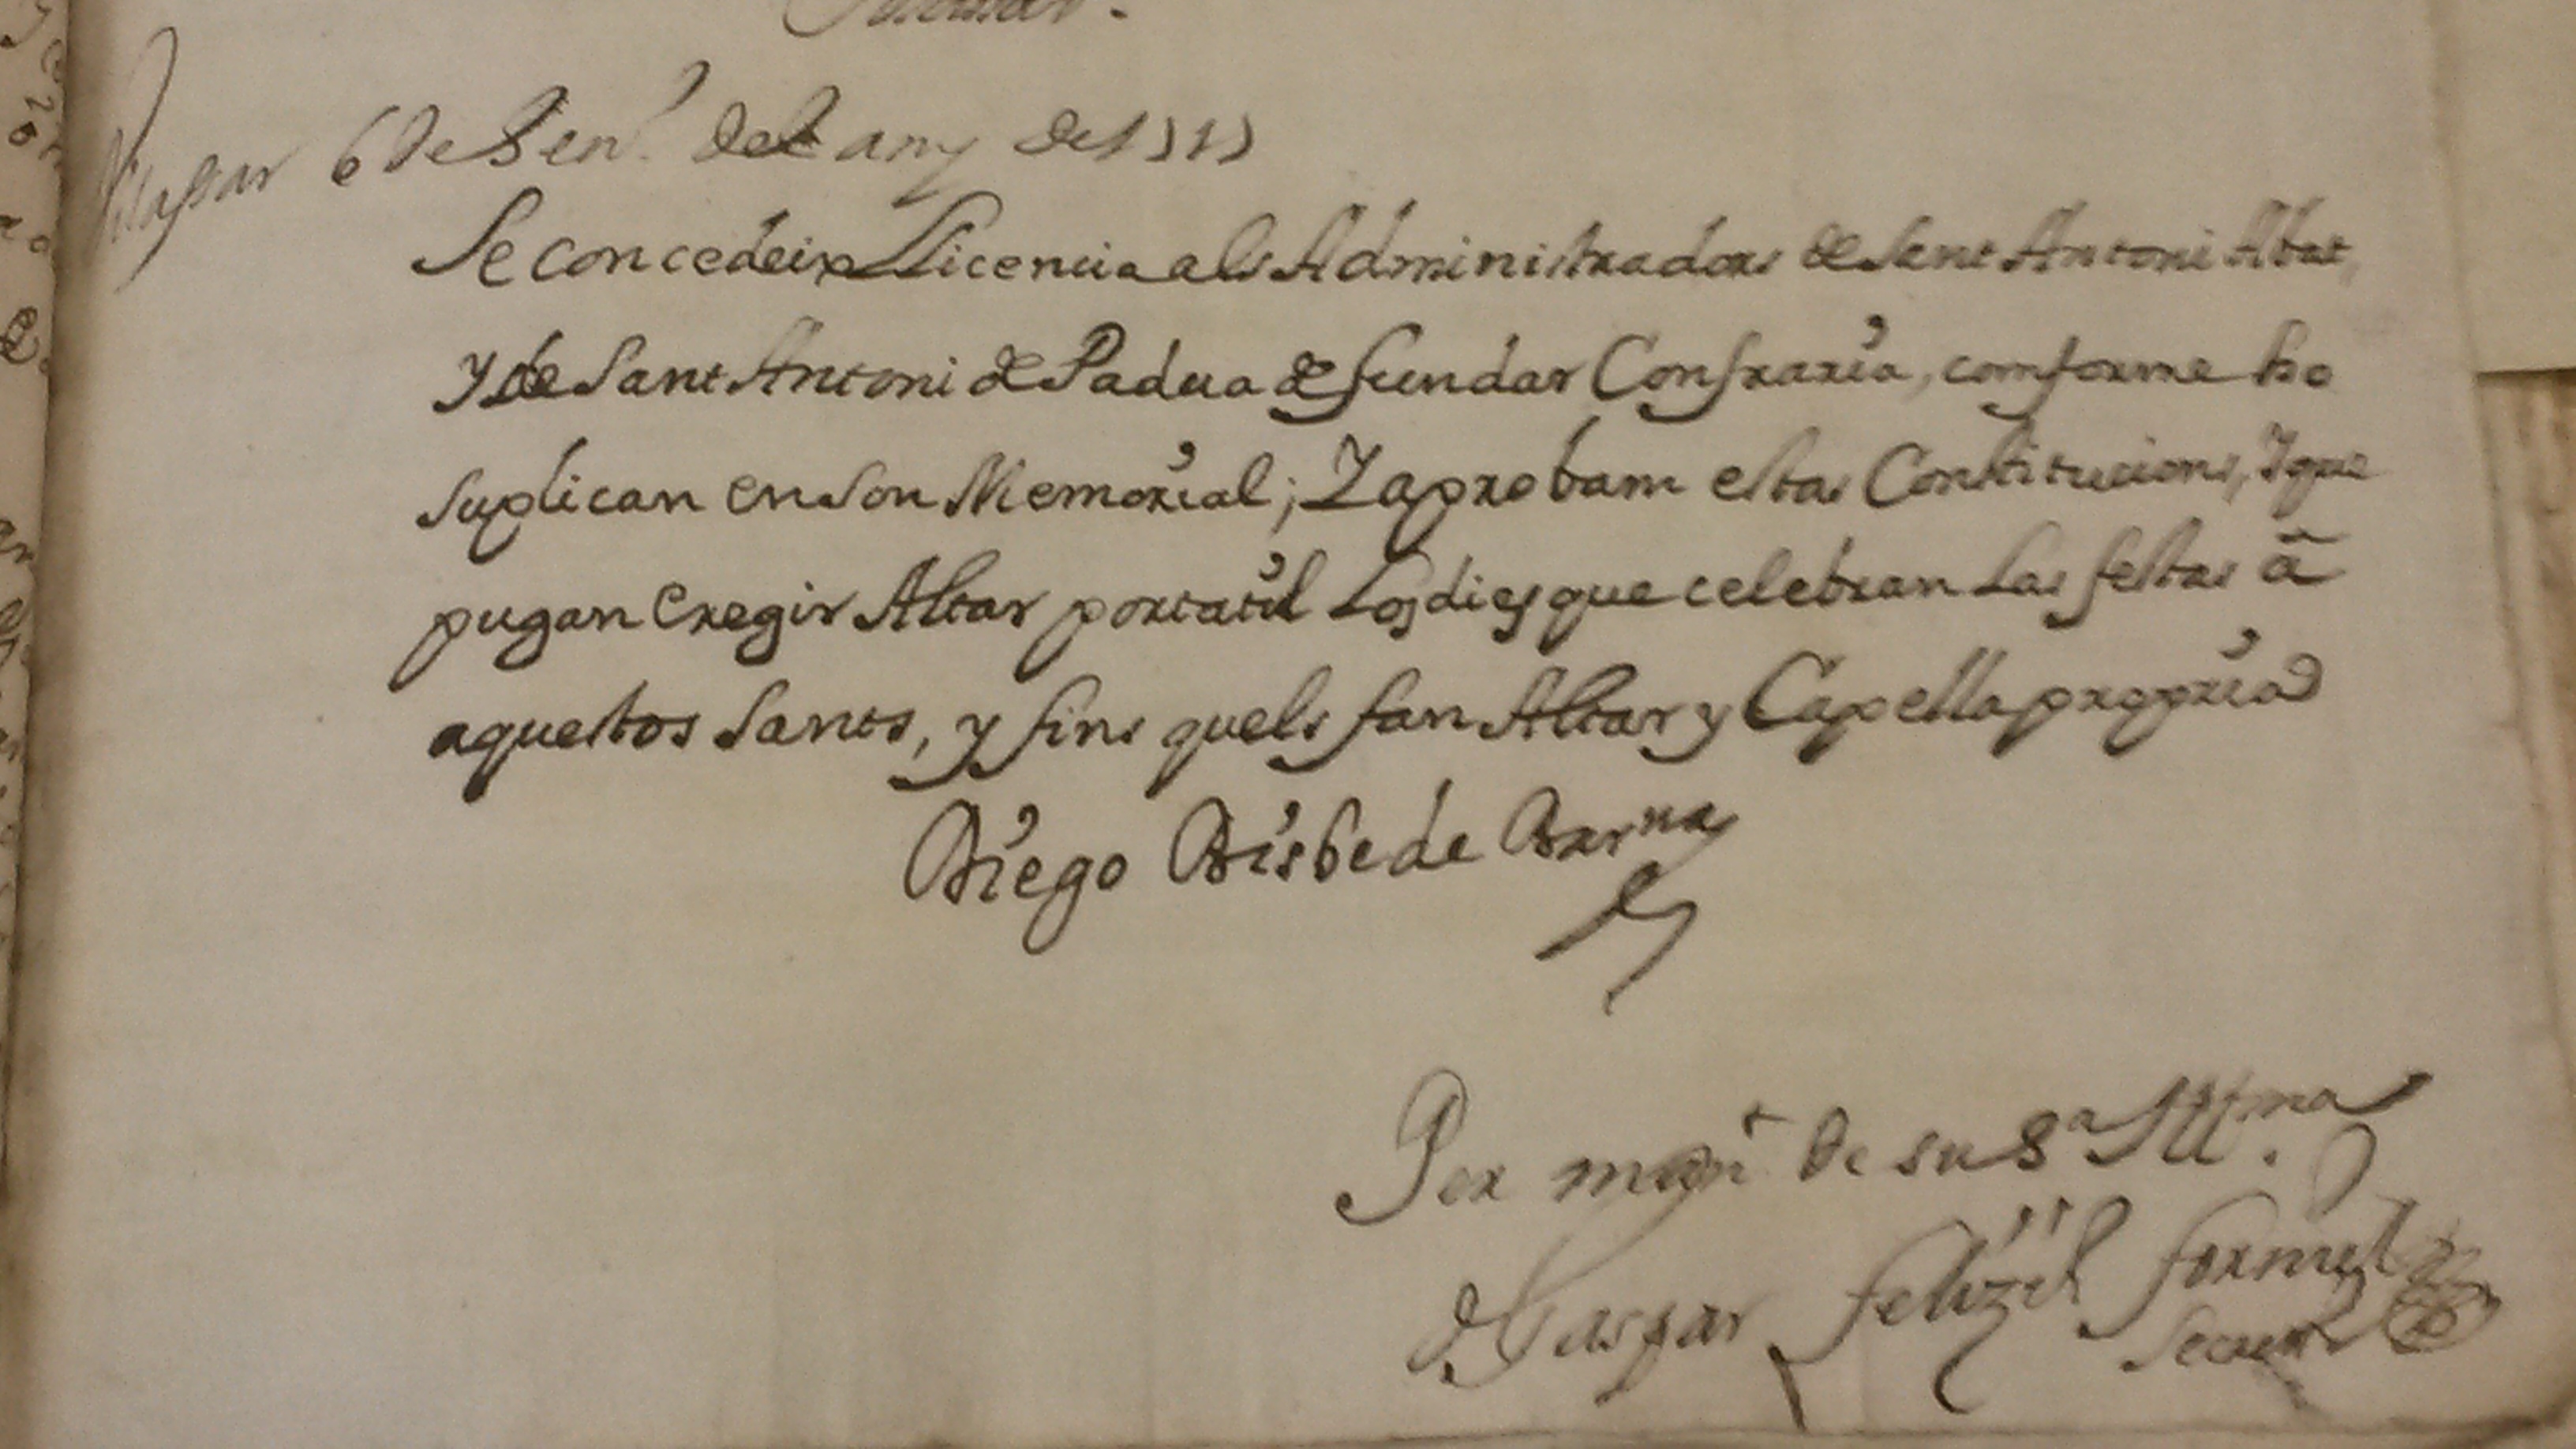 6 de Gen.r del any de 1757
Se concedeix Llicencia als Administradors de Sant Antoni Abat,
y de Sant Antoni de Padua de fundar Confraria, comforme ho
suplican en son Memorial; Y aprobam estas Constitucions, Y que
pugan eregir Altar portatil Los dies que celebran Las festas â
aquestos Sants, y fins quels fan Altar y Capella propria
Diego Bisbe de Barna
Per de su Sa Illma
Gaspar
Secret